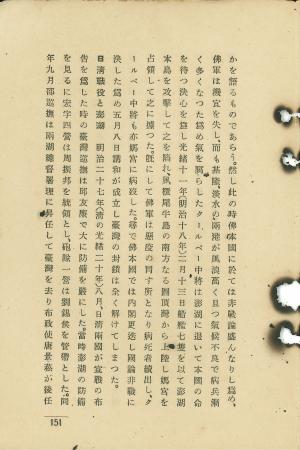 かを語るものであらう。然し此の時佛本國に於ては非戰論盛んなりし爲め、
佛軍は機宜を失し、而も基隆、淡水の兩港が風浪高く且つ氣候不良で病兵漸
く多くなつた爲め氣を腐らしたクールベー中將は澎湖に退いて本國の命
を待つ決心を爲し光緒十一年(明治十八年)二月十三日船艦七隻を以て澎湖
本島を攻擊して之を陷れ、風櫃尾半島の南方なる圓頂灣から上陸し媽宮を
占領して之に據つた。既にして佛軍は惡疫の冒す所となり病死者續出し、ク
ールベー中將も亦媽宮に病歿した。尋で佛本國では内閣更迭し國論非戰に
決した爲め五月八日講和が成立し臺灣の封鎖は全く解けてしまつた。
日清戰役と澎湖 明治二十七年(清の光緒二十年)八月、日清兩國が宣戰の布
告を爲した時の臺灣巡撫は邱友廉で大に防備を嚴にした。當時澎湖の防備
を見るに宏字四營は周振邦を統領とし、砲隊一營は劉錫侯を管帶とした。同
年九月邵巡撫は兩湖總督署理に昇任して臺灣を去り布政使唐景崧が後任
151